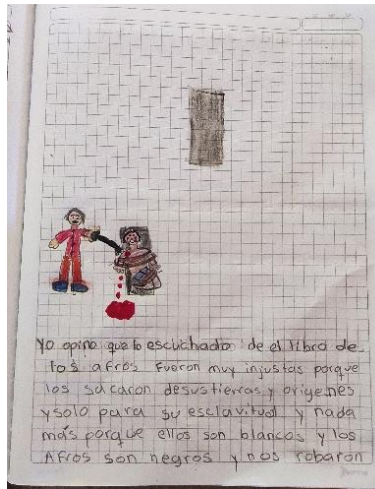 yo opino que lo escuchado de el libro de
los afros fueron muy injustas porque
los sacaron desus tierras y origenes
y solo para su esclavitud y nada
más porque ellos son blancos y los
Afros son negros y nos robaron